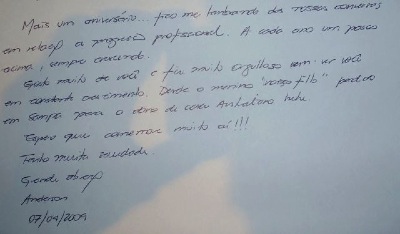 Mais um aniversário... fico me lembrando das nossas conversas
em relação a progressão profissional. A cada ano um pouco
acima, sempre crescendo.
Gosto muito de você e fico muito orgulhoso em ver você
em constante crescimento. Desde o menino "nosso filho"
em sampa para o
Espero que comemore muito aí!!!
Tenho muita saudade.
Grande abraço
Anderson
07/04/2009